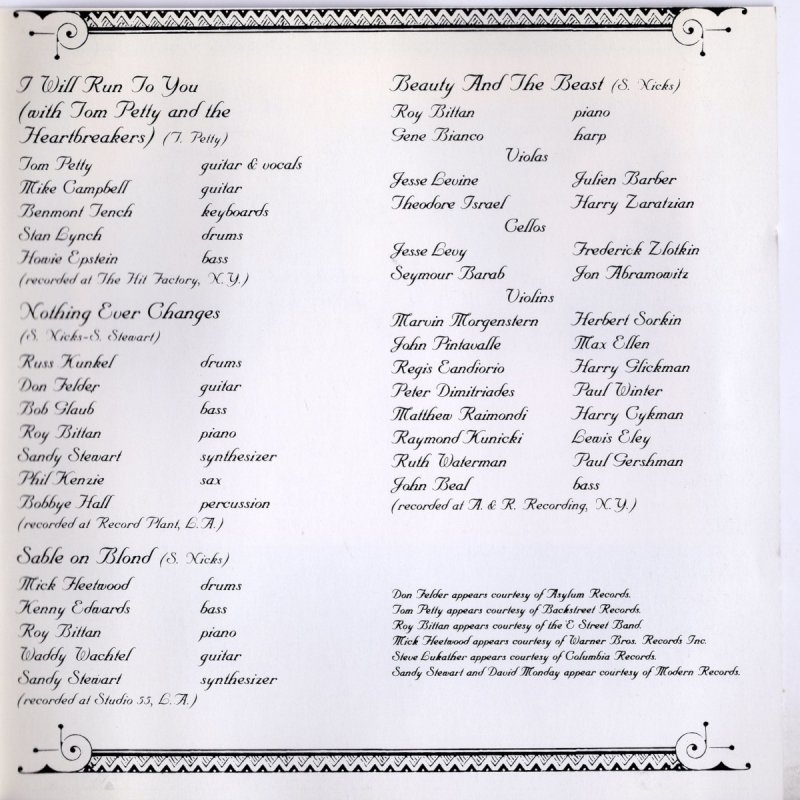 I Will Run To You
(with Tom Petty and the
Heartbreakers) (T. Petty)
Tom Petty guitar & vocals
Mike Campbell guitar
Benmont Tench keyboards
Stan Lynch drums
Howie Epstein bass
(recorded at The Hit Factory, N.Y.)
Nothing Ever Changes
(S. Nicks-S. Stewart)
Russ Kunkel drums
Don Felder guitar
Bob Glaub bass
Roy Bittan piano
Sandy Stewart synthesizer
Phil Kenzie sax
Bobbye Hall percussion
(recorded at Record Plant, L.A.)
Sable on Blond (S. Nicks)
Mick Fleetwood drums
Kenny Edwards bass
Roy Bittan piano
Waddy Wachtel guitar
Sandy Stewart synthesizer
(recorded at Studio 55, L.A.)
Beauty And The Beast (S. Nicks)
Roy Bittan piano
Gene Bianco harp
Violas
Jesse Levine Julien Barber
Theodore Israel Harry Zaratzian
Cellos
Jesse Levy Frederick Zlotkin
Seymour Barab Jon Abramowitz
Violins
Marvin Morgenstern Herbert Sorkin
John Pintavalle Max Ellen
Regis Eandiorio Harry Glickman
Peter Dimitriades Paul Winter
Matthew Raimondi Harry Cykman
Raymond Kunicki Lewis Eley
Ruth Waterman Paul Gershman
John Beal bass
(recorded at A. & R. Recording, N.Y.)
Don Felder appears courtesy of Asylum Records.
Tom Petty appears courtesy of Backstreet Records.
Roy Bittan appears courtesy of the E Street Band.
Mick Fleetwood appears courtesy of Warner Bros. Records Inc.
Steve Lukather appears courtesy of Columbia Records.
Sandy Stewart and David Monday appear courtesy of Modern Records.